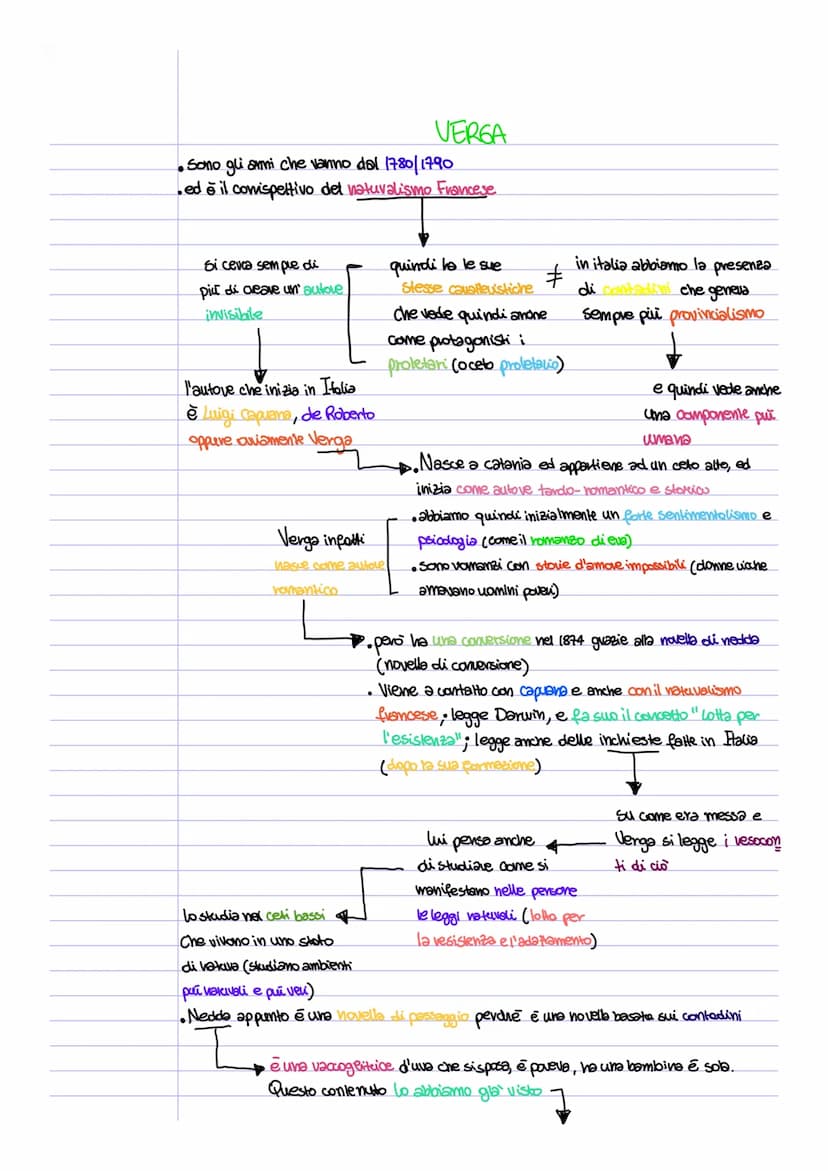 VERGA
• sono gli anni che vanno dal 1780/1790
• ed è il corrispettivo del naturalismo Francese
Si cerca sempre di
più di creare un' autore
invisibile
quindi ha le sue
stesse caratteristiche
che vede quindi anche
come protagonisti i
proletari (o ceto proletario)
≠
in italia abbiamo la presenza
di contadini che genera
sempre più provincialismo
e quindi vede anche
una componente più
umana
l'autore che inizia in Italia
è Luigi Capuana, de Roberto
oppure ovviamente Verga
• Nasce a catania ed appartiene ad un ceto alto, ed
inizia come autore tardo-romantico e storico
• abbiamo quindi inizialmente un forte sentimentalismo e
psicologia (come il romanzo di eva)
• sono romanzi con storie d'amore impossibili (donne ricche
amavano uomini poveri)
Verga infatti
nasce come autore
romantico
• però ha una conversione nel 1874 grazie alla novella di nedda
(novella di conversione)
• Viene a contatto con capuana e anche con il naturalismo
francese; legge Darwin, e fa suo il concetto "Lotta per
l'esistenza"; legge anche delle inchieste fatte in Italia
(dopo la sua formazione)
su come era messa e
Verga si legge i resocon
ti di ciò
lui pensa anche
di studiare come si
manifestano nelle persone
le leggi naturali (lotta per
la resistenza e l'adattamento)
lo studia nei ceti bassi
Che vivono in uno stato
di natura (studiano ambienti
più naturali e più veri)
• Nedda appunto è una novella di passaggio perché è una novella basata sui contadini
è una raccoglitrice d'uva che si sposa, è povera, ha una bambina è sola.
Questo contenuto lo abbiamo già visto